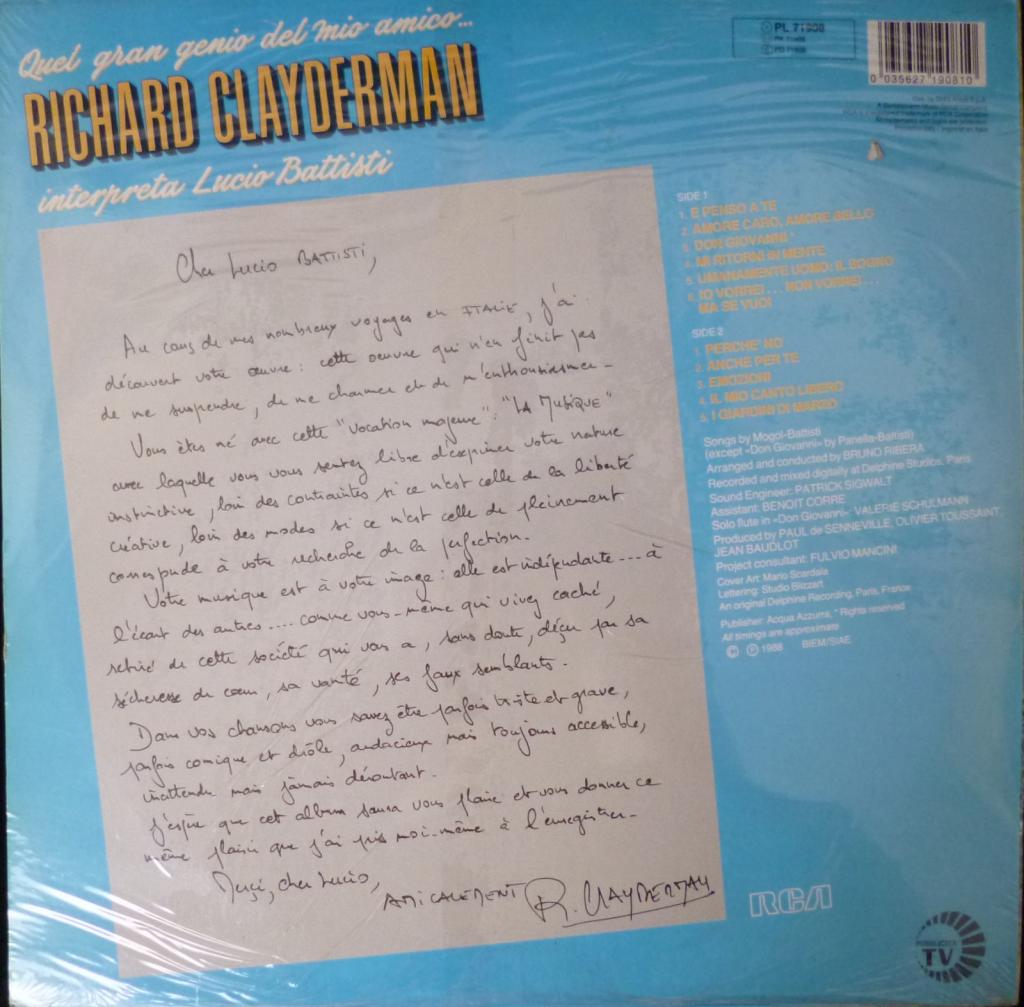 Quel gran genio del mio amico...
RICHARD CLAYDERMAN
interpreta Lucio Battisti
PL 71908
0 035627 190810
Cher Lucio BATTISTI,
Au cours de mes nombreux voyages en ITALIE, j'ai
découvert votre œuvre : cette oeuvre qui n'en finit pas
de me surprendre, de me charmer et de m'enthousiasmer -
Vous êtes né avec cette "vocation majeure" : "LA MUSIQUE"
avec laquelle vous vous sentez libre d'exprimer votre nature
instinctive, loin des contraintes si ce n'est celle de la liberté
créative, loin des modes si ce n'est celle de pleinement
correspondre à votre recherche de la perfection.
Votre musique est à votre image : elle est indépendante .... à
l'écart des autres .... comme vous-même qui vivez caché,
retiré de cette société qui vous a, sans doute, déçu par sa
sécheresse de cœur, sa vanité, ses faux semblants.
Dans vos chansons vous savez être parfois triste et grave,
parfois comique et drôle, audacieux mais toujours accessible,
inattendu mais jamais déroutant.
J'espère que cet album saura vous plaire et vous donner ce
même plaisir que j'ai pris moi-même à l'enregistrer -
Merci, cher Lucio,
AMICALEMENT R. CLAYDERMAN
SIDE 1
1. E PENSO A TE
2. AMORE CARO, AMORE BELLO
3. DON GIOVANNI *
4. MI RITORNI IN MENTE
5. UMANAMENTE UOMO: IL SOGNO
6. IO VORREI . . . NON VORREI . . .
MA SE VUOI
SIDE 2
1. PERCHE' NO
2. ANCHE PER TE
3. EMOZIONI
4. IL MIO CANTO LIBERO
5. I GIARDINI DI MARZO
Songs by Mogol-Battisti
(except «Don Giovanni» by Panella-Battisti)
Arranged and conducted by BRUNO RIBERA
Recorded and mixed digitally at Delphine Studios, Paris
Sound Engineer: PATRICK SIGWALT
Assistant: BENOIT CORRE
Solo flute in «Don Giovanni»: VALERIE SCHULMANN
Produced by PAUL de SENNEVILLE, OLIVIER TOUSSAINT,
JEAN BAUDLOT
Project consultant: FULVIO MANCINI
Cover Art: Mario Scardala
Lettering: Studio Blizzart
An original Delphine Recording, Paris, France
Publisher: Acqua Azzurra, * Rights reserved
All timings are approximate
© ℗ 1988 BIEM/SIAE
RCA
TV